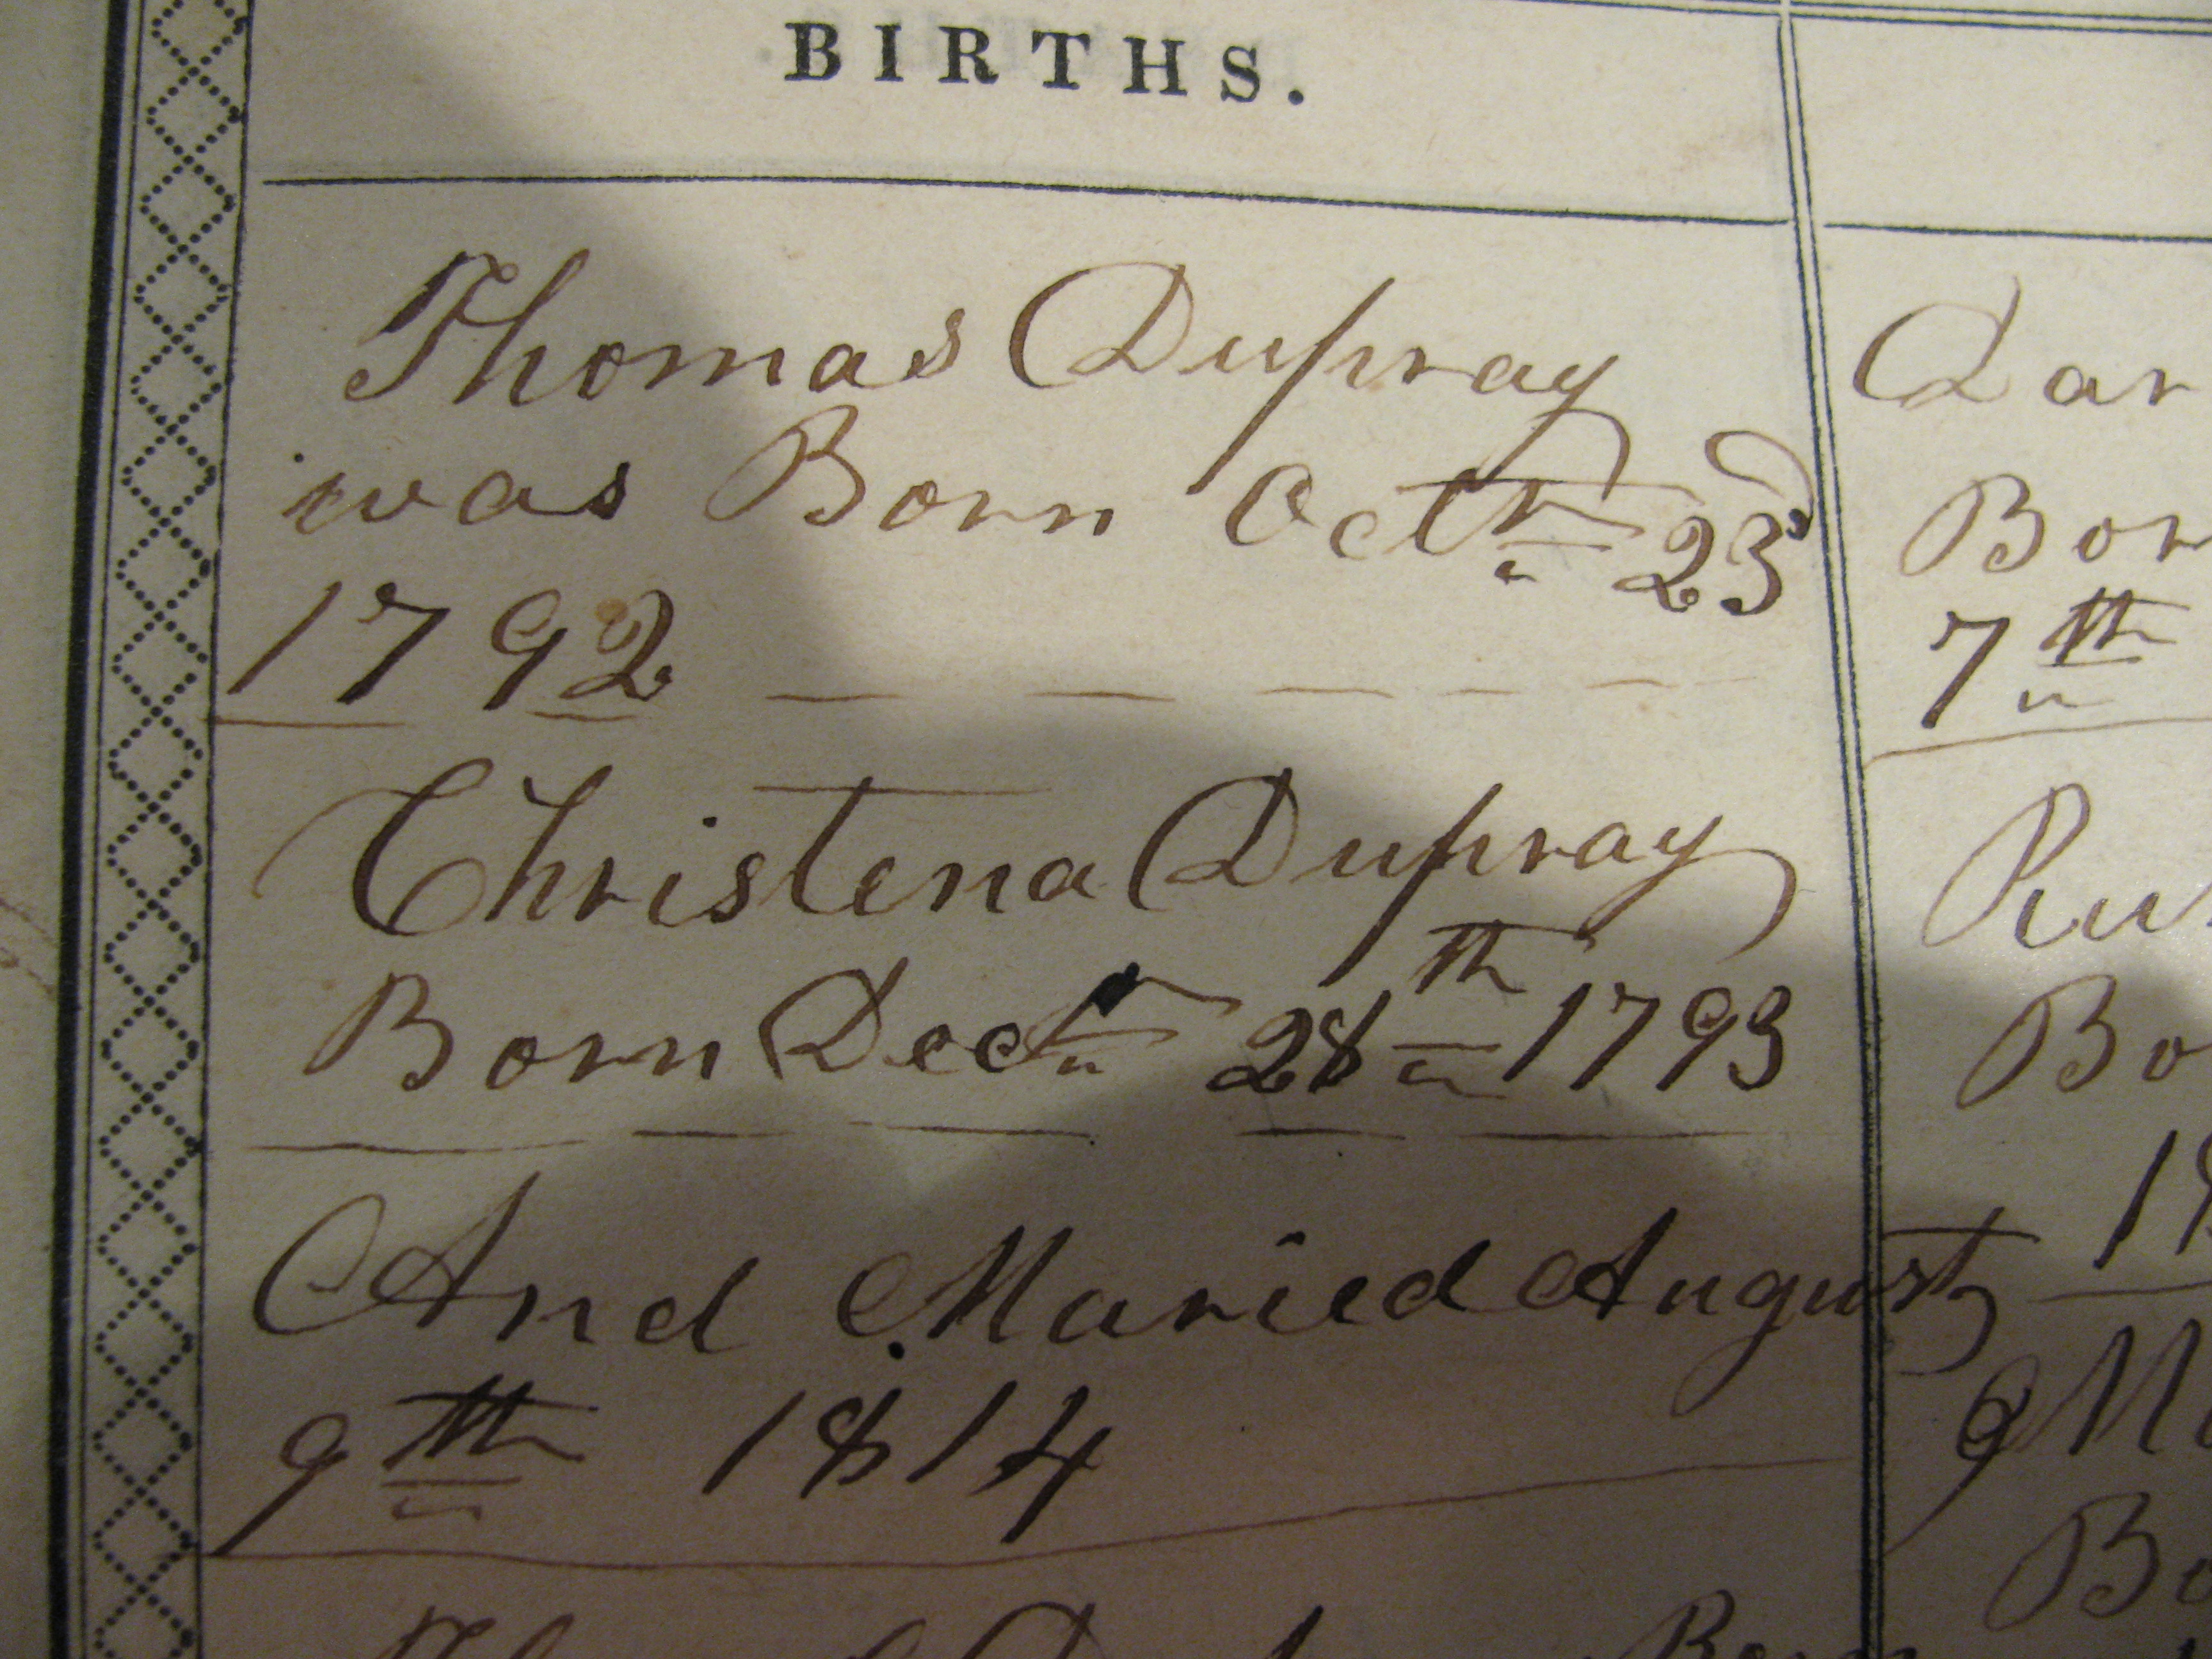 BIRTHS.
Thomas Dupray
was Born Octr 23d
1792
Christena Dupray
Born Decr 28th 1793
And Maried August
9th 1814
Born
Dar
Bor
7th
Ru
Bo
18
M
Bo